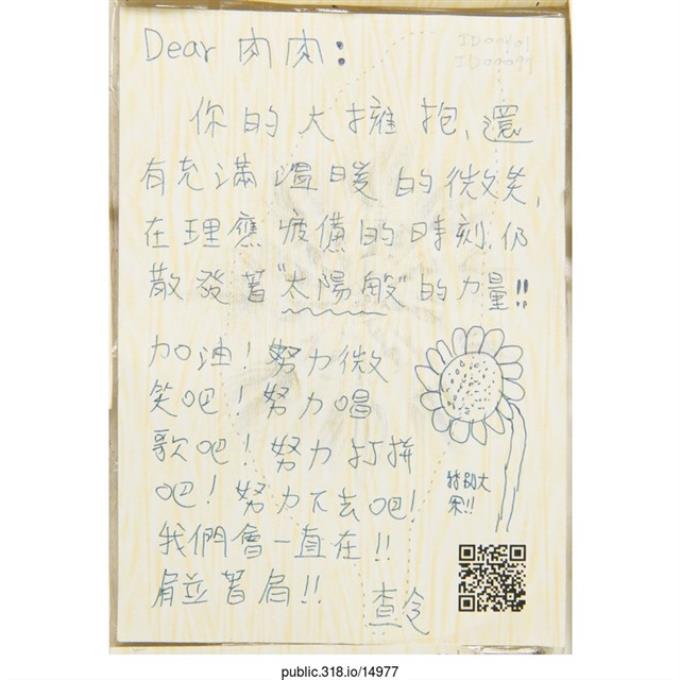 Dear 肉肉:
你的大擁抱、還
有充滿溫暖的微笑,
在理應疲憊的時刻,仍
散發著"太陽般"的力量!!
加油!努力微
笑吧!努力唱
歌吧!努力打拼
吧!努力下去吧!
我們會一直在!!
肩並著肩!!
特別大
朵!!
public.318.io/14977